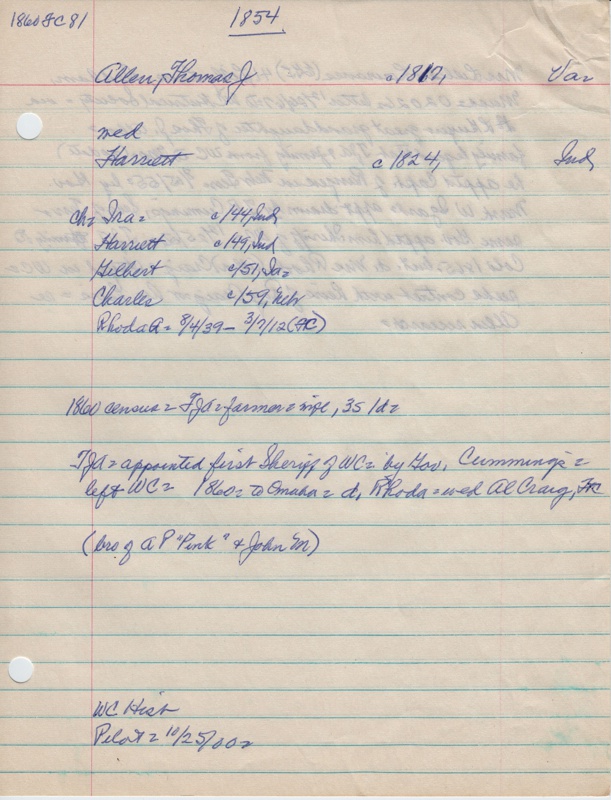 1860 FC 81
1854
Allen, Thomas J c/1817, Va=
wed
Harriett c/1824, Ind
ch= Ira= c/44, Ind
Harriett c/49, Ind
Gilbert c/51, Ia=
Charles c/59, Nebr
Rhoda A= 8/4/39 - 3/7/12 (FC)
1860 census= TJA= farmer= 35 /d=
TJA= appointed first Sheriff of WC= by Gov, Cummings=
left WC= 1860= to Omaha= d, Rhoda= wed Al Craig, FC
(bro of A P "Pink" & John M)
WC Hist
Pilot= 10/25/00=